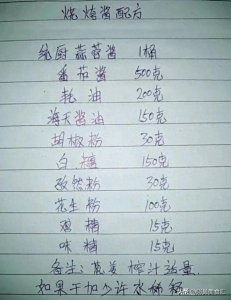 烧烤酱配方
纯厨蒜蓉酱 1桶
番茄酱 500克
耗油 200克
海天酱油 150克
胡椒粉 30克
白糖 150克
孜然粉 30克
花生粉 100克
鸡精 15克
味精 15克
备注:葱姜榨汁适量.
如果干加少许水稀释